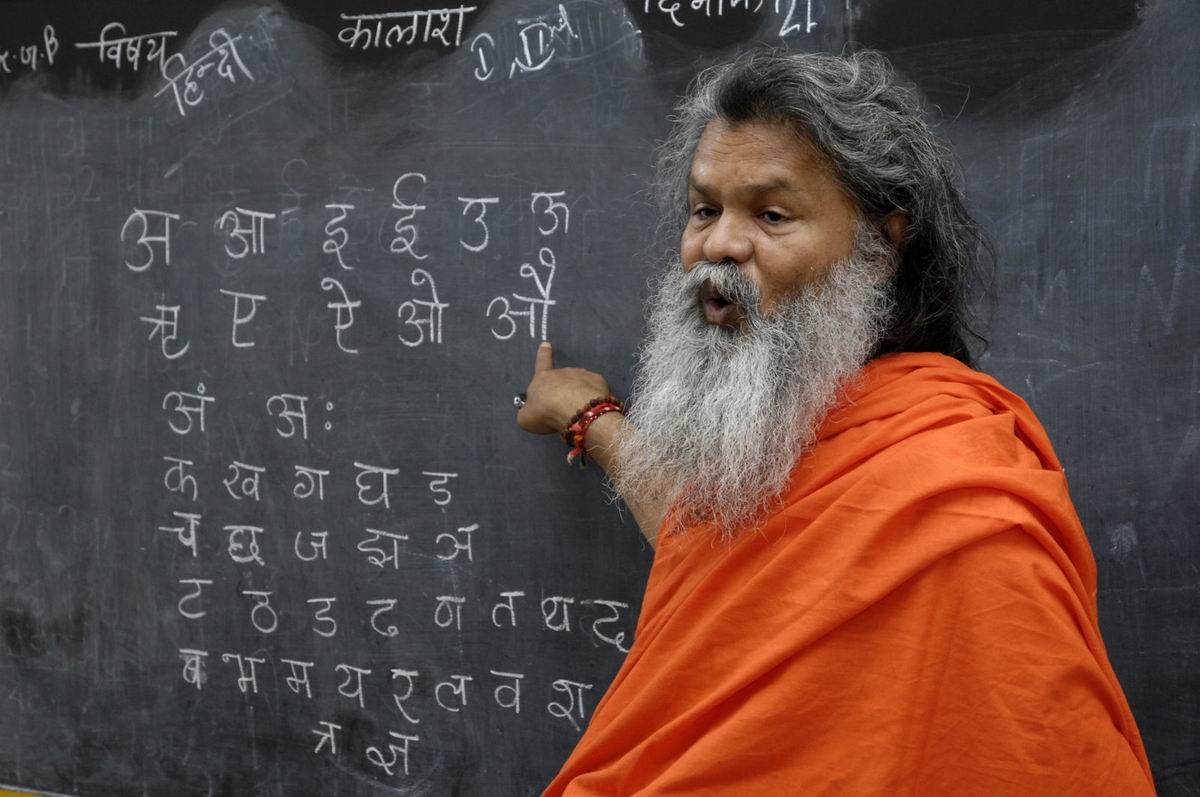 विषय हिन्दी कालाश I, II दिनांक 21
अ आ इ ई उ ऊ
ऋ ए ऐ ओ औ
अं अः
क ख ग घ ड़
च छ ज झ ञ
ट ठ ड ढ ण त थ द
ब भ म य र ल व श
त्र ज्ञ